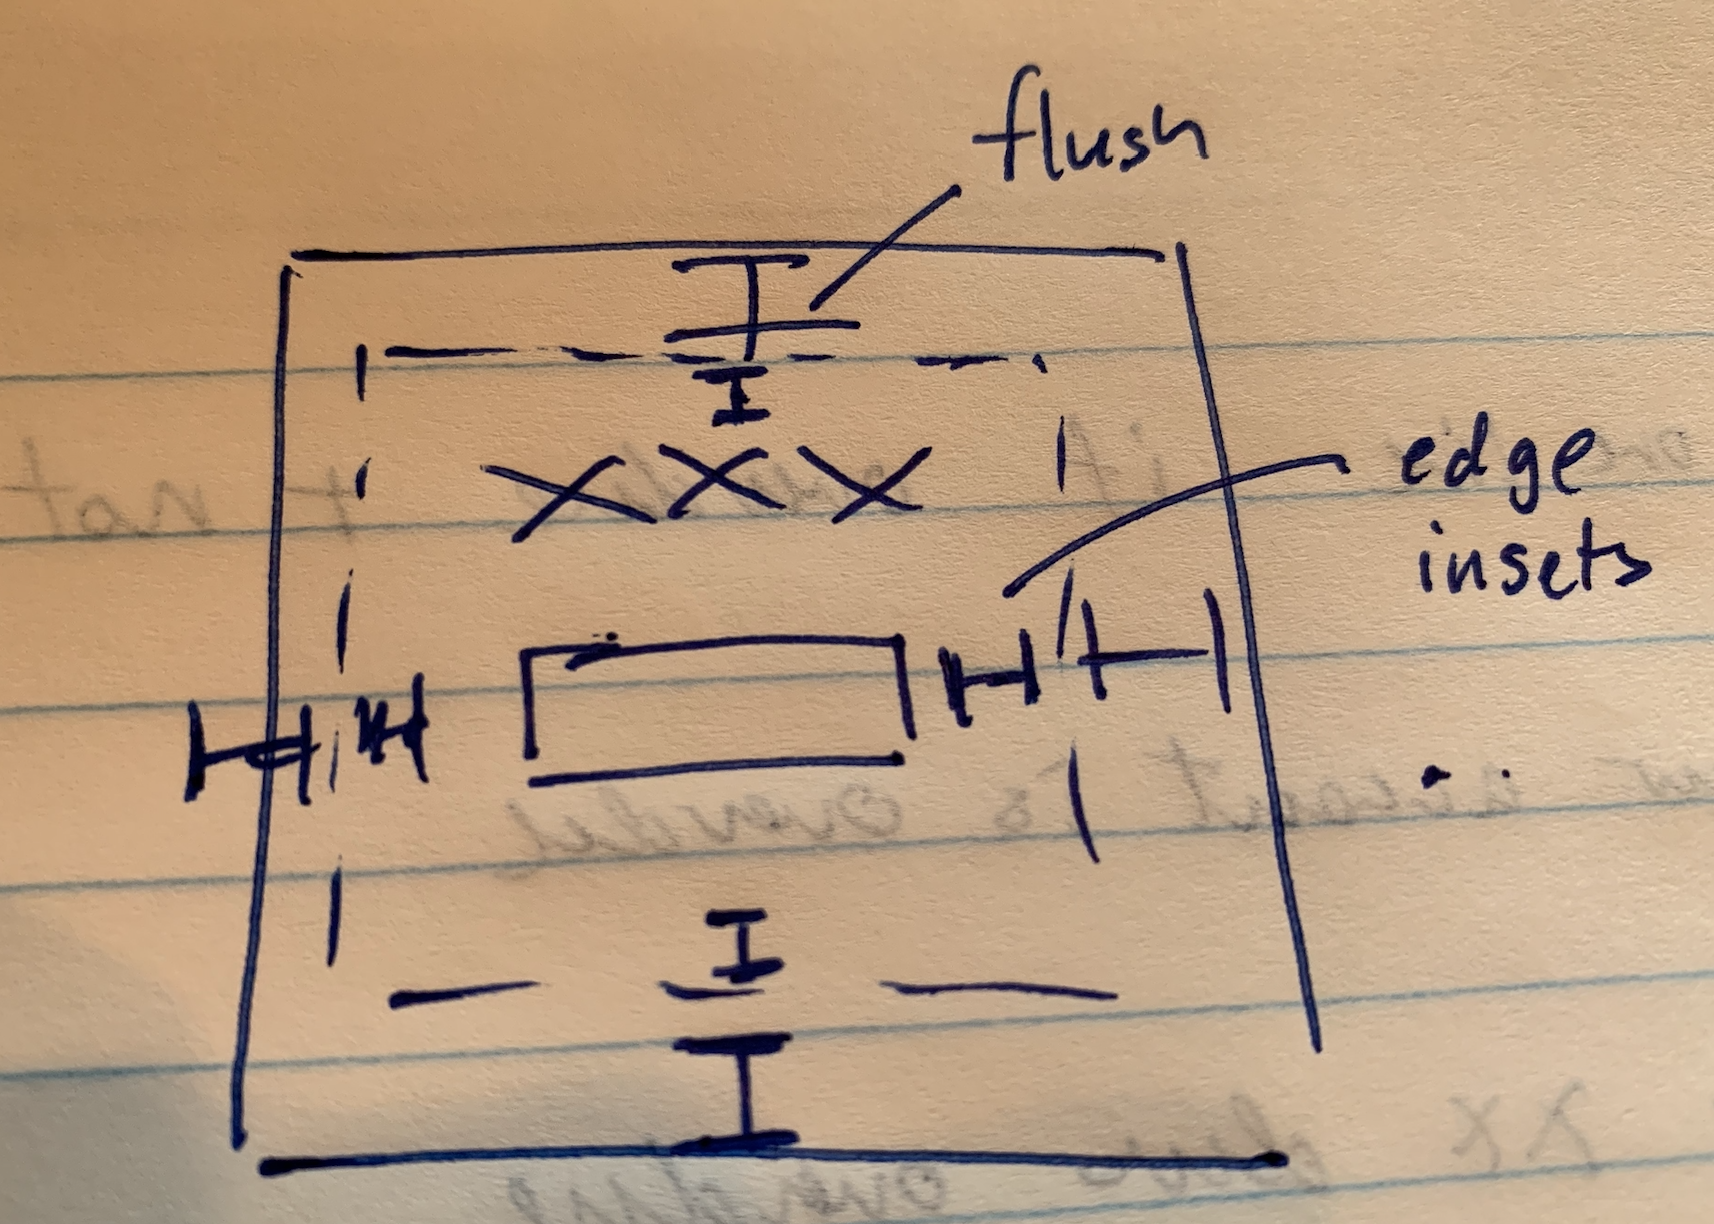 flush
XXX
edge
insets